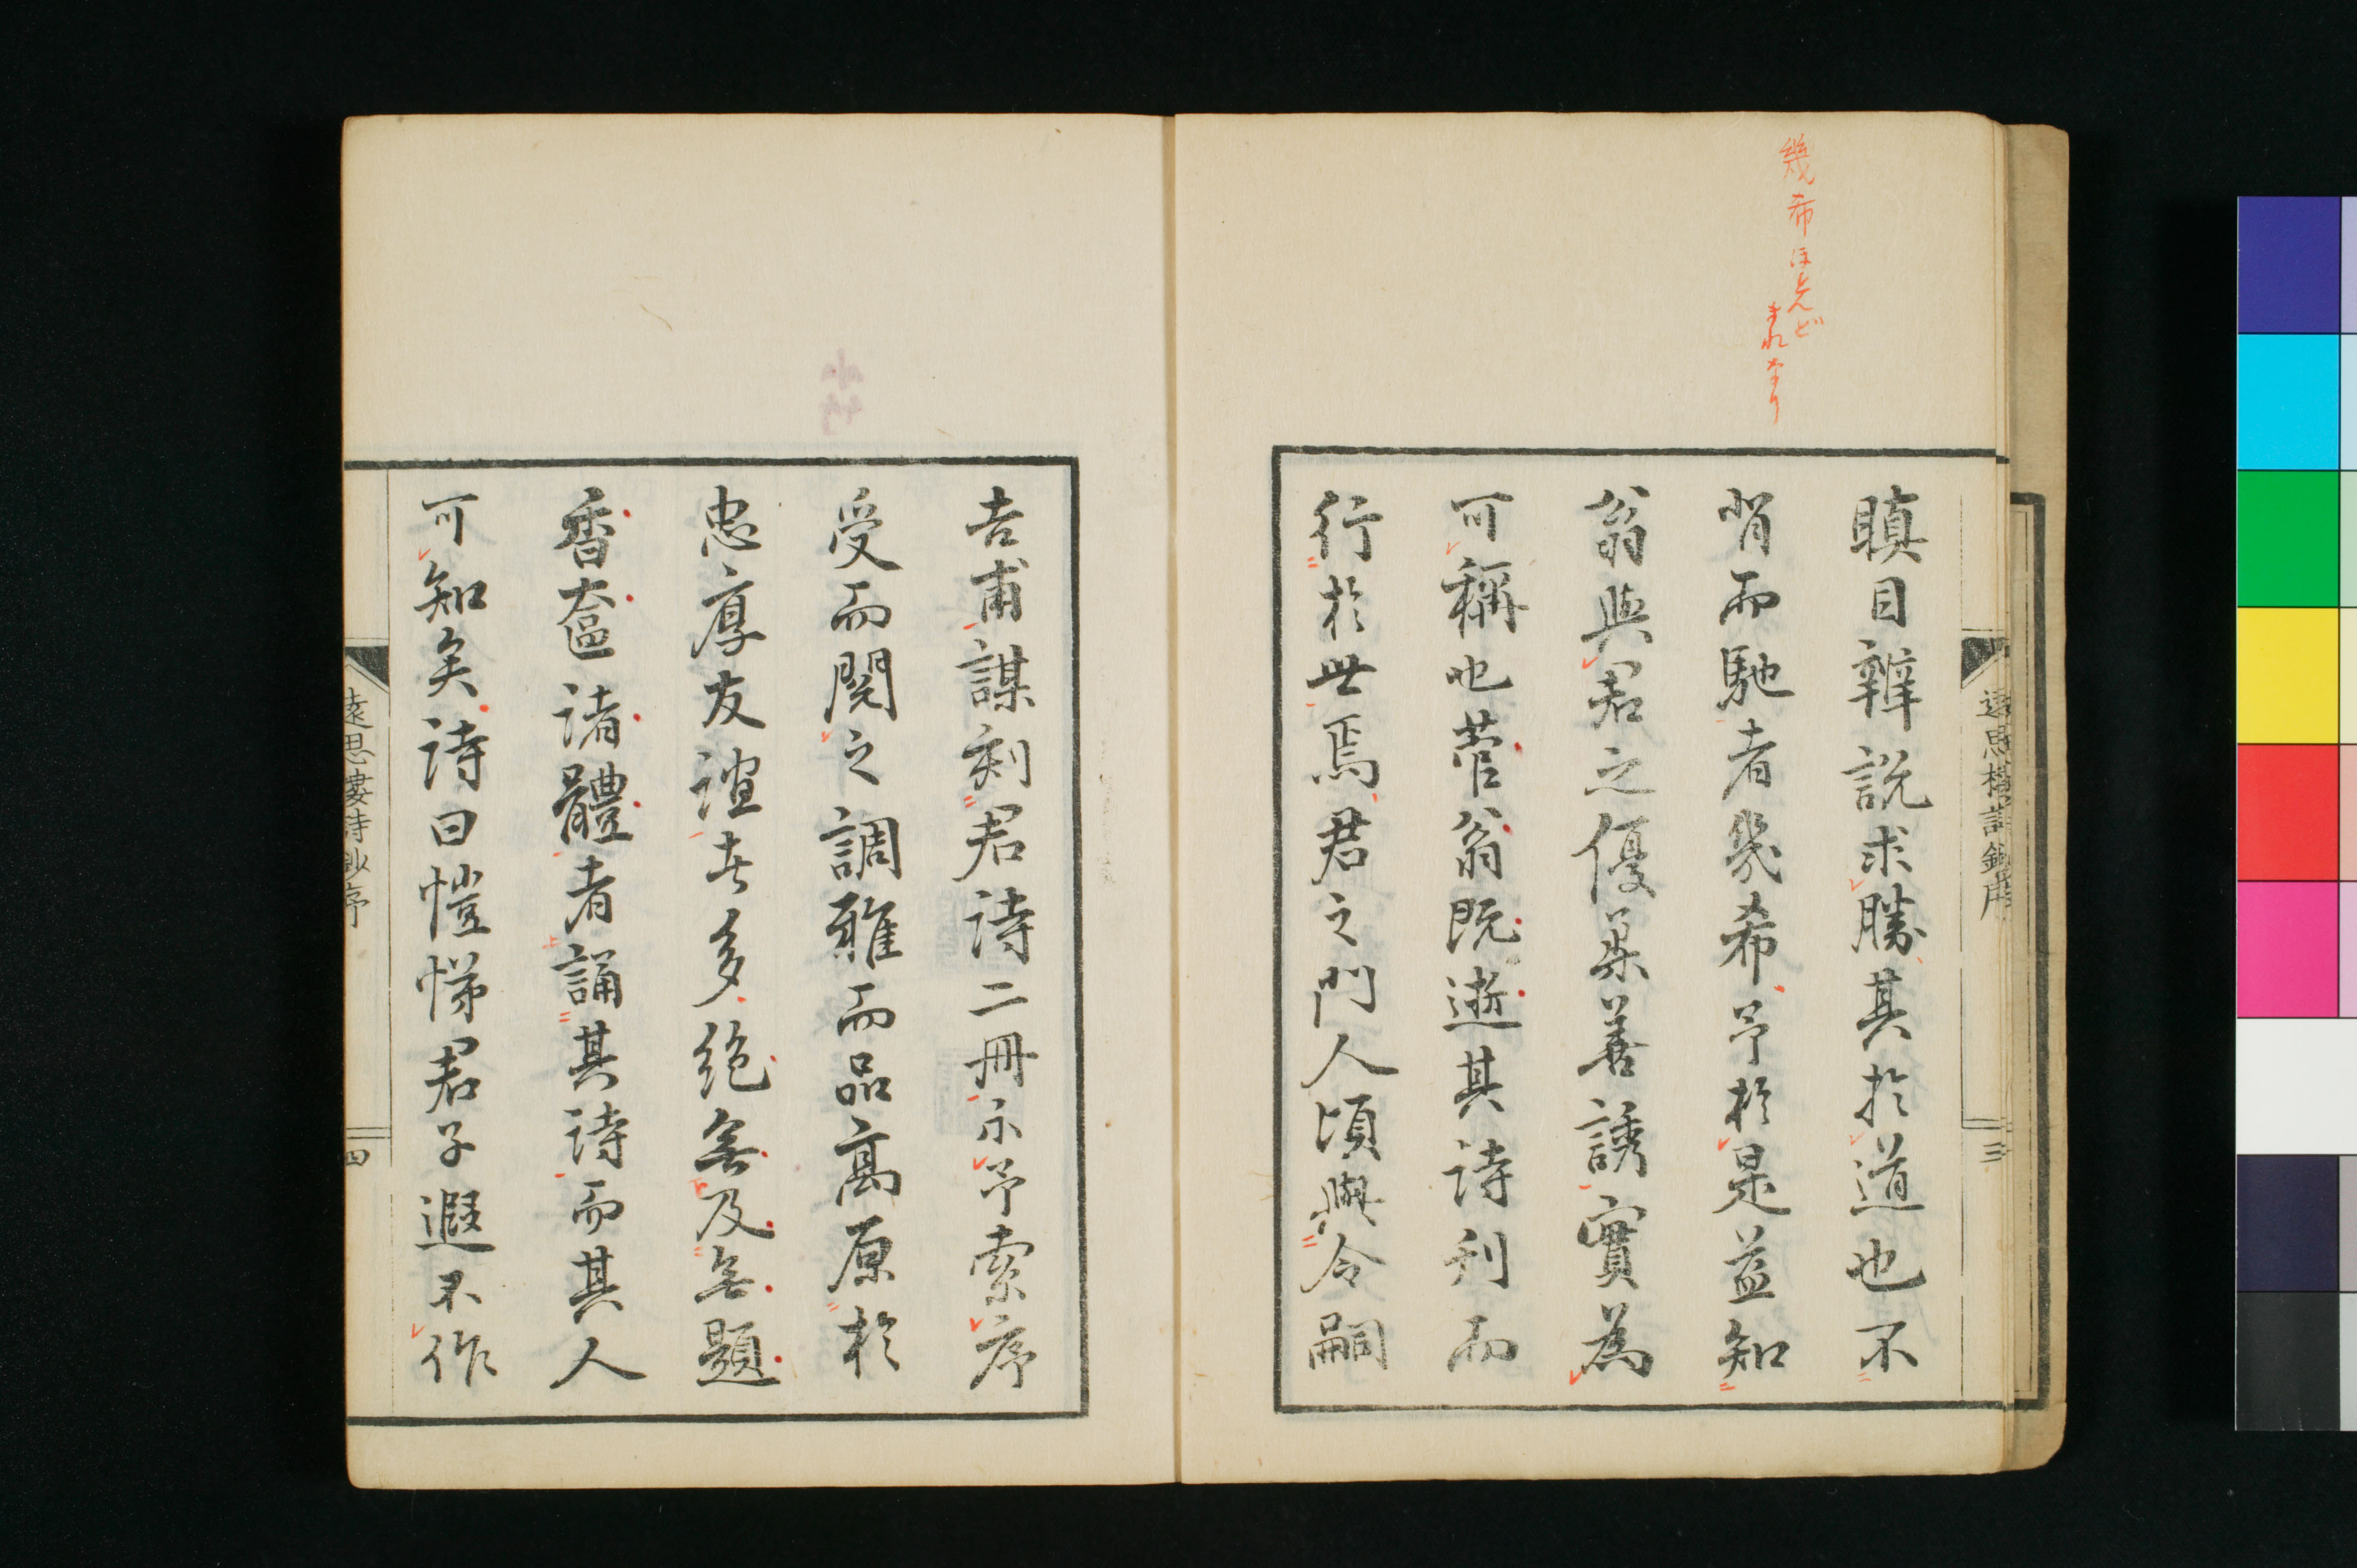 幾希ほとんど
まれなり
瞋目辯説求勝其於道也不
背而馳者幾希予於是益知
翁與君之優柔善誘實為
可稱也菅翁既逝其詩刊而
行於世焉君之門人頃與令嗣
遠思樓詩鈔序
三
吉甫謀刻君詩二冊示予索序
受而閲之調雅而品高原於
忠厚友誼者多絶無及無題
香奩諸體者誦其詩而其人
可知矣詩曰愷悌君子遐不作
遠思婁詩鈔序
四